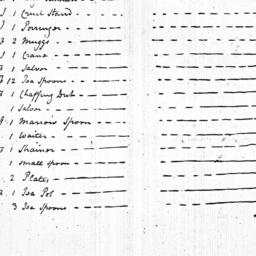 1 Cruet Stand
1 Porringer
2 Muggs
1 Crane
1 Salvor
12 Tea Spoons
1 Chaffing Dish
1 Salvor
1 Marrow Spoon
1 Waiter
1 Strainer
1 small spoon
2 Plates
1 Tea Pot
3 Tea Spoons